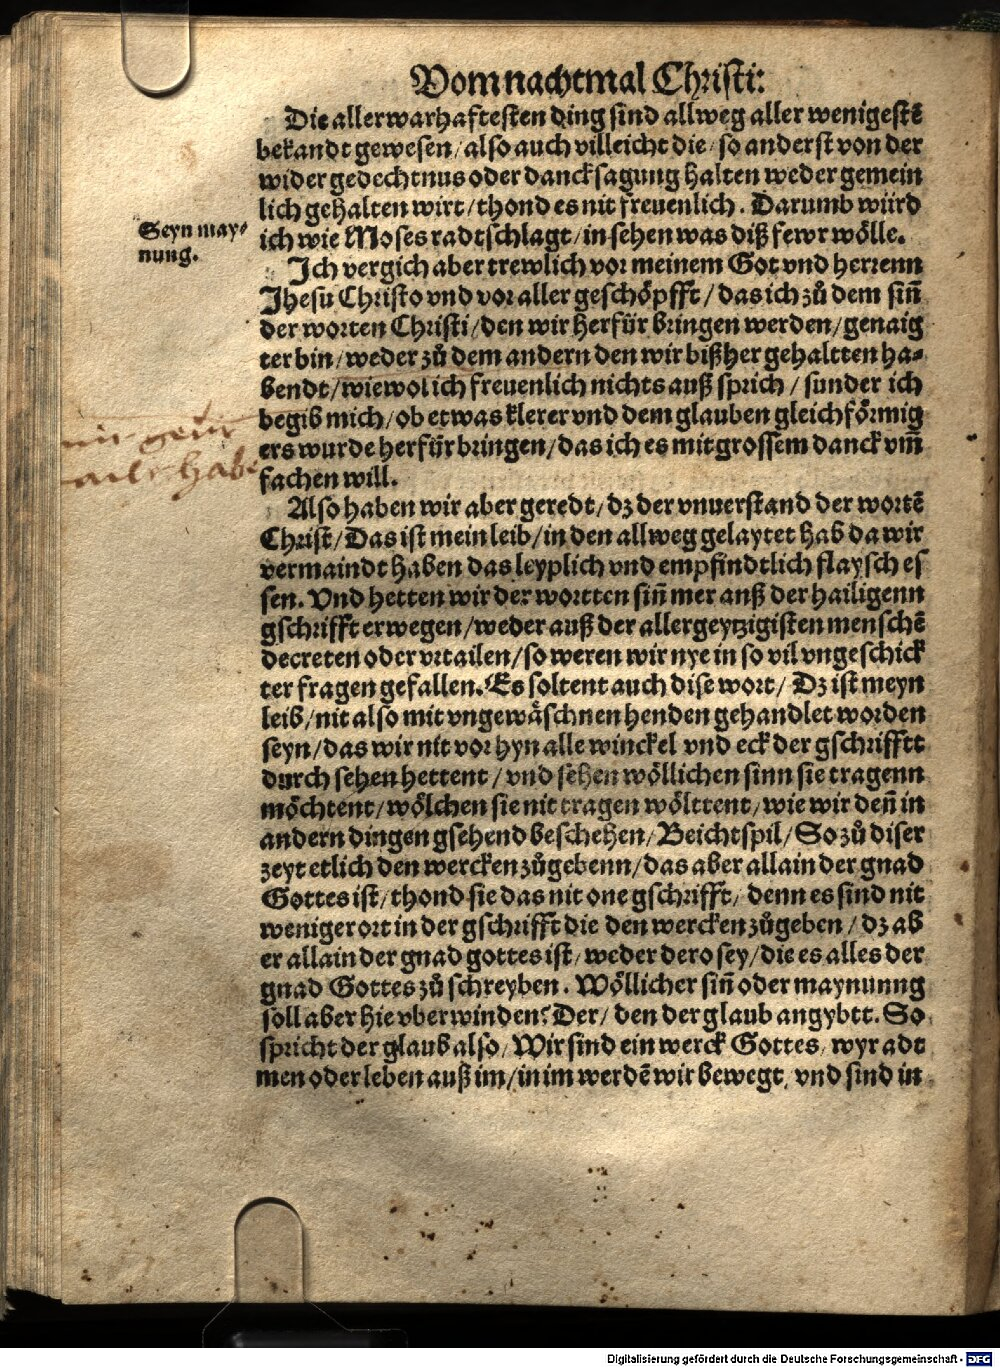 Vom nachtmal Christi:
Die aller warhaftesten ding sind allweg aller wenigestē
bekandt gewesen/ also auch villeicht die/ so anderst von der
wider gedechtnus oder dancksagung halten weder gemein
lich gehalten wirt/ thond es nit freuenlich. Darumb würd
ich wie Moses radtschlagt/ in sehen was diß fewr wölle.
Seyn may⸗
nung.
Ich vergich aber trewlich vor meinem Got vnd herrenn
Jhesu Christo vnd vor aller geschöpfft/ das ich zů dem sinñ
der worten Christi/ den wir herfür bringen werden/ genaig
ter bin/ weder zů dem andern den wir bißher gehaltten ha⸗
bendt/ wiewol ich freuenlich nichts auß sprich/ sunder ich
begib mich/ ob etwas klerer vnd dem glauben gleichförmig
ers wurde herfür bringen/ das ich es mit grossem danck vm̄
fachen will.
Also haben wir aber geredt/ dz der vnuerstand der wortē
Christ/ Das ist mein leib/ in den allweg gelaytet hab da wir
vermaindt haben das leyplich vnd empfindtlich flaysch es
sen. Vnd hetten wir der wortten sinñ mer anß der hailigenn
gschrifft erwegen/ weder auß der allergeytzigisten menschē
decreten oder vrtailen/ so weren wir nye in so vil vngeschick
ter fragen gefallen. Es soltent auch dise wort/ Dz ist meyn
leib/ nit also mit vngewäschnen henden gehandlet worden
seyn/ das wir nit vor hyn alle winckel vnd eck der gschrifftt
durch sehen hettent/ vnd sehen wöllichen sinn sie tragenn
möchtent/ wölchen sie nit tragen wölttent/ wie wir deñ in
andern dingen gsehend beschehen/ Beichtspil/ So zů diser
zeyt etlich den wercken zůgebenn/ das aber allain der gnad
Gottes ist/ thond sie das nit one gschrifft/ denn es sind nit
weniger ort in der gschrifft die den wercken zůgeben/ dz ab
er allain der gnad gottes ist/ weder dero sey/ die es alles der
gnad Gottes zů schreyben. Wöllicher siñ oder maynunng
soll aber hie vberwinden? Der/ den der glaub angybtt. So
spricht der glaub also/ Wir sind ein werck Gottes/ wyr adt
men oder leben auß im/ in im werdē wir bewegt/ vnd sind in
Digitalisierung gefördert durch die Deutsche Forschungsgemeinschaft - DFG